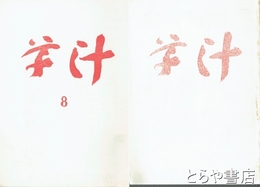 芋汁
8
芋汁
とらや書店